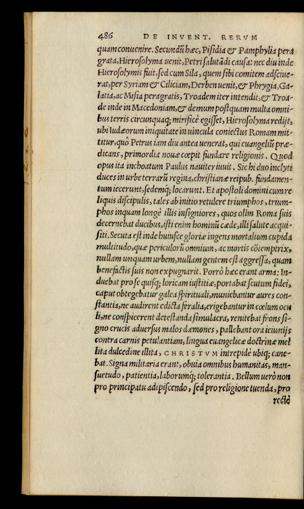 486 DE INVENT. RERVM
quam conuenire. Secundũ hæc, Pisidia & Pamphylia pera
grata, Hierosolyma uenit, Petri salutãdi causa: nec diu inde
Hierosolymis fuit, sed cum Sila, quem sibi comitem adsciue-
rat, per Syriam & Ciliciam, Derben uenit, & Phrygia, Ga-
latia, ac Misia peragratis, Troadem iter intendit, & Troa-
de inde in Macedoniam, & demum postquam multa omni-
bus terris circunquaq; mirifice egisset, Hierosolyma redijt,
ubi Iudæorum iniquitate in uincula coniectus Romam mit-
titur, quò Petrus iam diu antea uenerat, qui euangeliũ præ-
dicans, primordia noue cœpit fundare religionis. Quod
opus ita inchoatum Paulus nauiter iuuit. Sic hi duo inclyti
duces in urbe terrarũ regina, christianæ reipub. fundamen-
tum iecerunt, sedemq; locarunt. Et apostoli domini cum re
liquis discipulis, tales ab initio retulere triumphos, trium-
phos inquam longè illis insigniores, quos olim Roma suis
decernebat ducibus, isti enim hominũ cæde, illi salute acqui-
siti. Secuta est inde huiusce gloriæ ingens mortalium cupida
multitudo, quæ periculorũ omnium, ac mortis cõtemptrix,
nullam unquam urbem, nullam gentem est aggressa, quam
beneficijs suis non expugnarit. Porrò hæc erant arma: In-
duebat pro se quisq; loricam iustitiæ, portabat scutum fidei,
caput obtegebatur galea spirituali, muniebantur aures con-
stantia, ne audirent edicta feralia, erigebantur in cœlum ocu
li, ne conspicerent detestanda simulacra, renitebat frons si-
gno crucis aduersus malos dæmones, pallebant ora ieiunijs
contra carnis petulantiam, lingua euangelicæ doctrinæ mel
lita dulcedine illita, CHRISTVM intrepidè ubiq; cane-
bat. Signa militaria erant, obuia omnibus humanitas, man-
suetudo, patientia, laborumq; tolerantia. Bellum uerò non
pro principatu adipiscendo, sed pro religione tuenda, pro
rectè